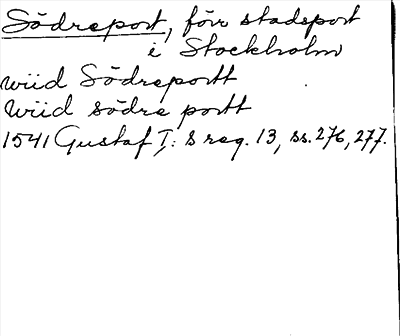 Södreport, förr stadsport
i Stockholm
wiid Södreportt
Wiid södre portt
1541 Gustaf I: s reg. 13, ss. 276, 277.